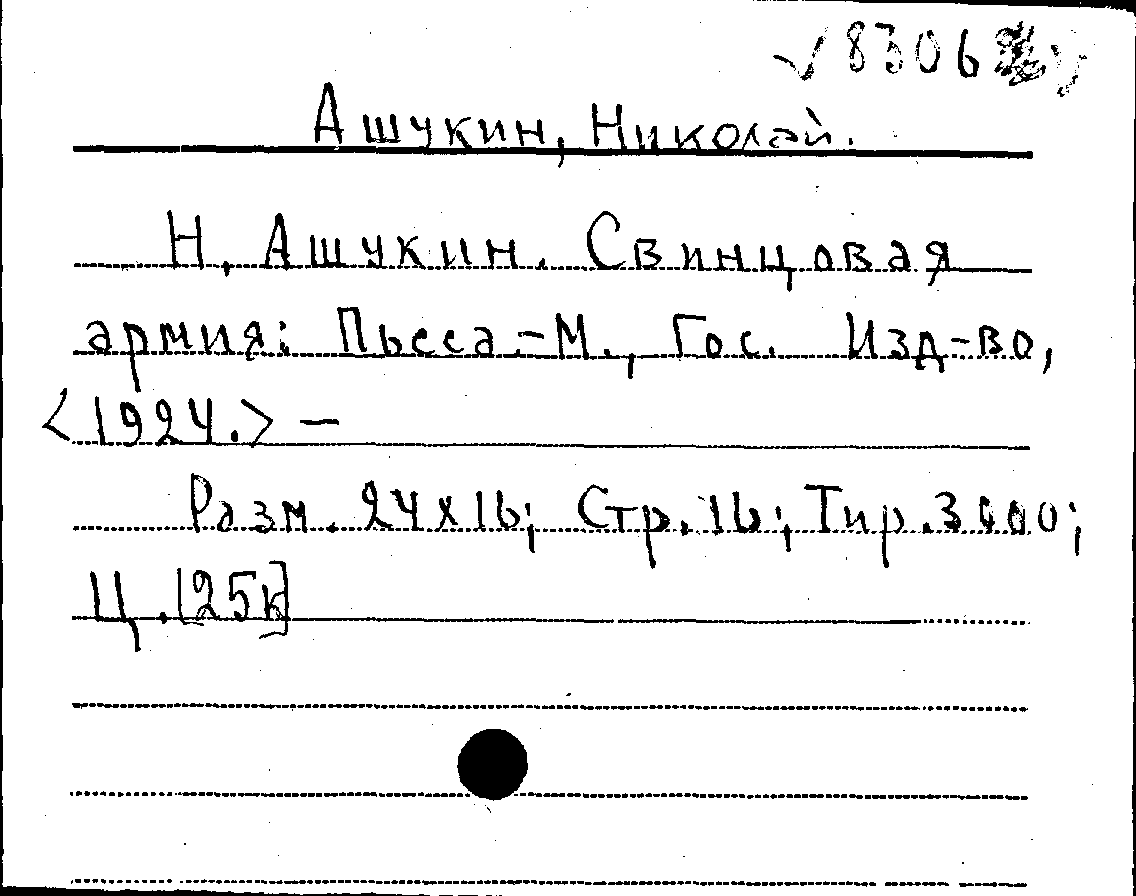 √ 8306
Ашукин, Николай.
Н. Ашукин. Свинцовая
армия: Пьеса.-М., Гос. Изд-во,
<1924.> –
Разм. 24х16; Стр. 16; Тир. 3000;
Ц. [25к]